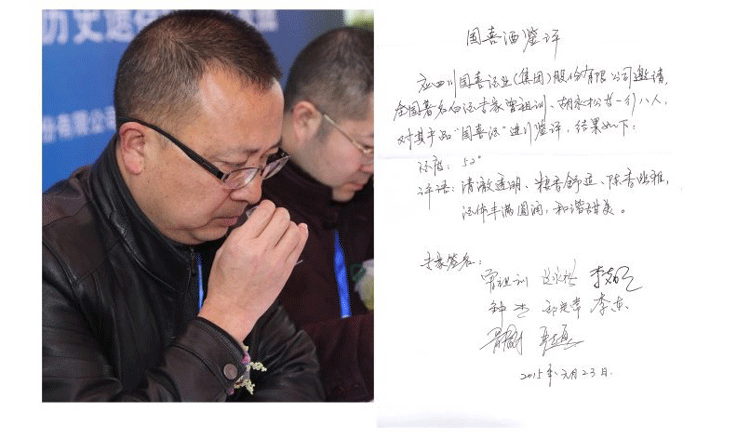 历史遗
份有限公司
国喜酒鉴评
应四川国喜酒业(集团)股份有限公司邀请,
全国著名白酒专家曾祖训、胡永松等一行八人,
对其产品“国喜酒”进行鉴评,结果如下:
酒度: 52°
评语:清澈透明、糟香舒适、陈香幽雅,
酒体丰满圆润,和谐甜美。
专家签名:
曾祖训
钟杰 李东
2015年元月23日